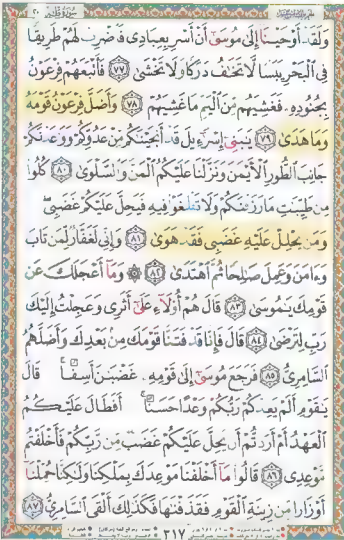 سورة طه ٢٠
ولقد أوحينا إلى موسى أن أسر بعبادى فاضرب لهم طريقا
في البحر يبسا لا تخف دركا ولا تخشى ٧٧ فأتبعهم فرعون
بجنوده فغشيهم من اليم ما غشيهم ٧٨ وأضل فرعون قومه
وما هدى ٧٩ يبنى إسرءيل قد أنجينكم من عدوكم ووعدنكم
جانب الطور الأيمن ونزلنا عليكم المن والسلوى ٨٠ كلوا
من طيبت ما رزقنكم ولا تطغوا فيه فيحل عليكم غضبى
ومن يحلل عليه غضبى فقد هوى ٨١ وإنى لغفار لمن تاب
وءامن وعمل صلحا ثم اهتدى ٨٢ ۞ وما أعجلك عن
قومك يموسى ٨٣ قال هم أولاء على أثرى وعجلت إليك
رب لترضى ٨٤ قال فإنا قد فتنا قومك من بعدك وأضلهم
السامرى ٨٥ فرجع موسى إلى قومه غضبن أسفا قال
يقوم ألم يعدكم ربكم وعدا حسنا أفطال عليكم
العهد أم أردتم أن يحل عليكم غضب من ربكم فأخلفتم
موعدى ٨٦ قالوا ما أخلفنا موعدك بملكنا ولكنا حملنا
أوزارا من زينة القوم فقذفنها فكذلك ألقى السامرى ٨٧
٣١٧